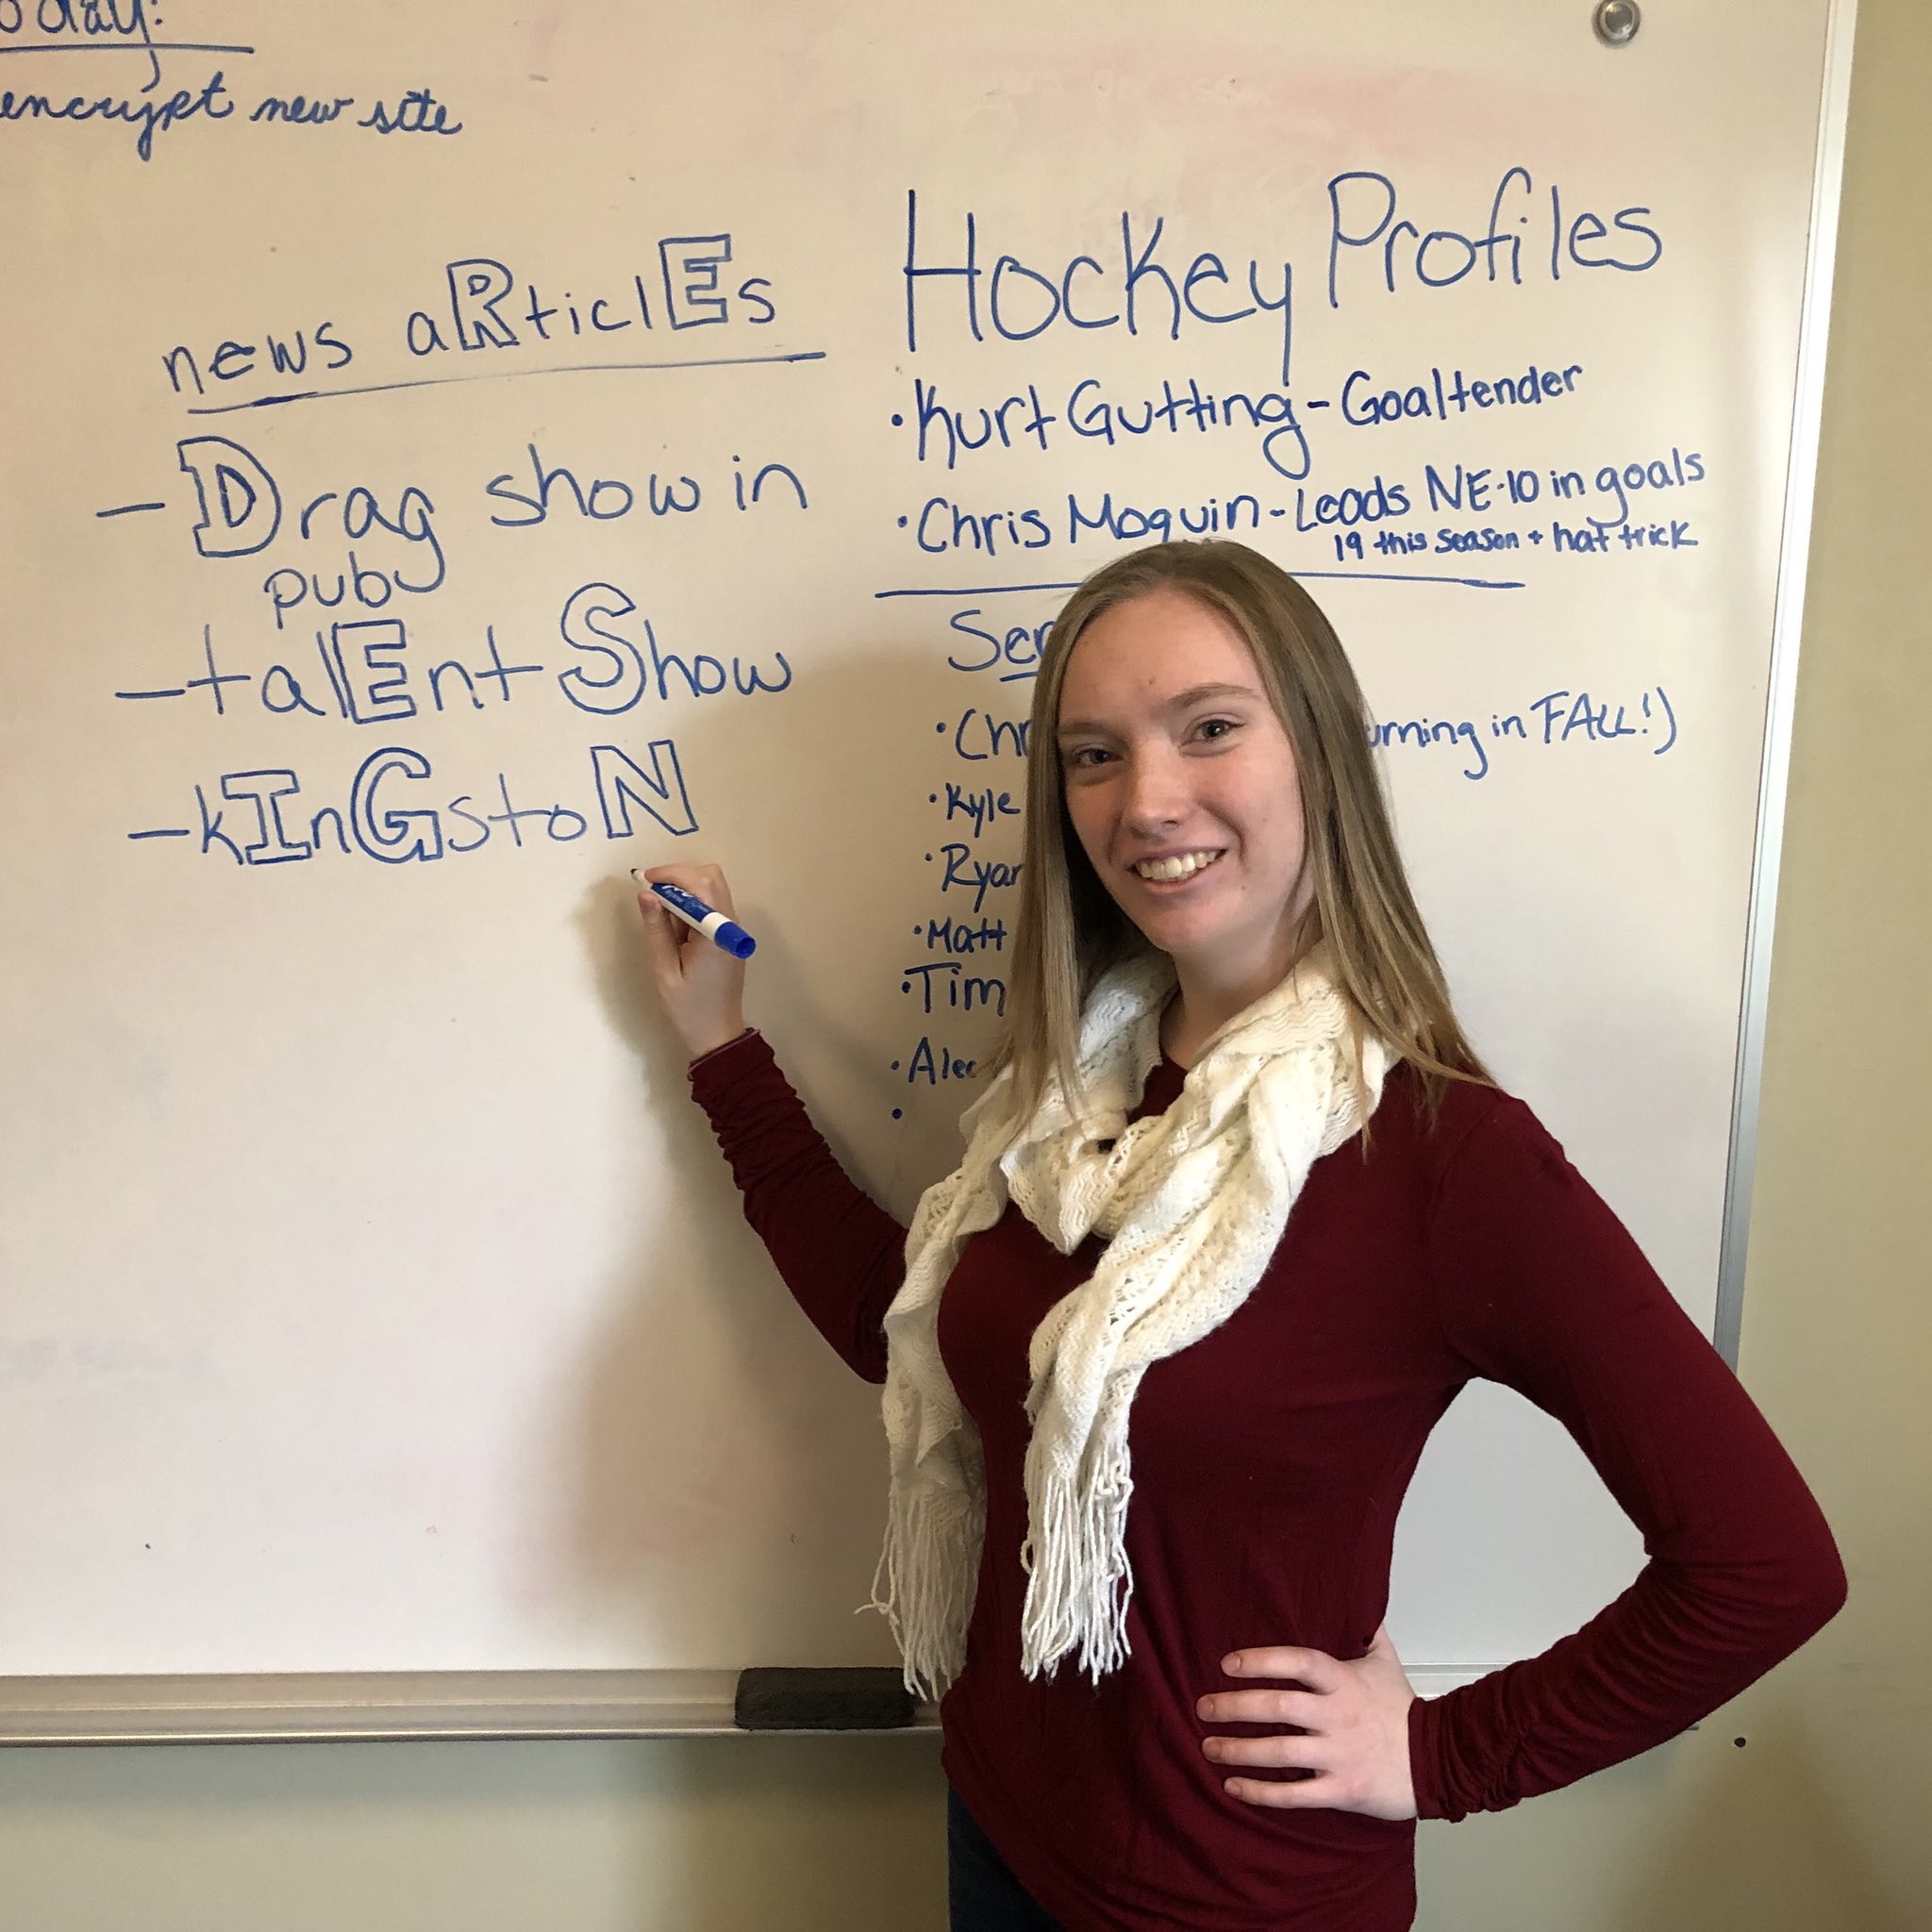 encrypt new site
news aRticlEs
-Drag show in
pub
-talEnt Show
-kInGstoN
Hockey Profiles
•Kurt Gutting-Goaltender
•Chris Moquin-Leads NE-10 in goals
19 this season + hat trick
in FALL!)
•Kyle
•Matt
•Tim